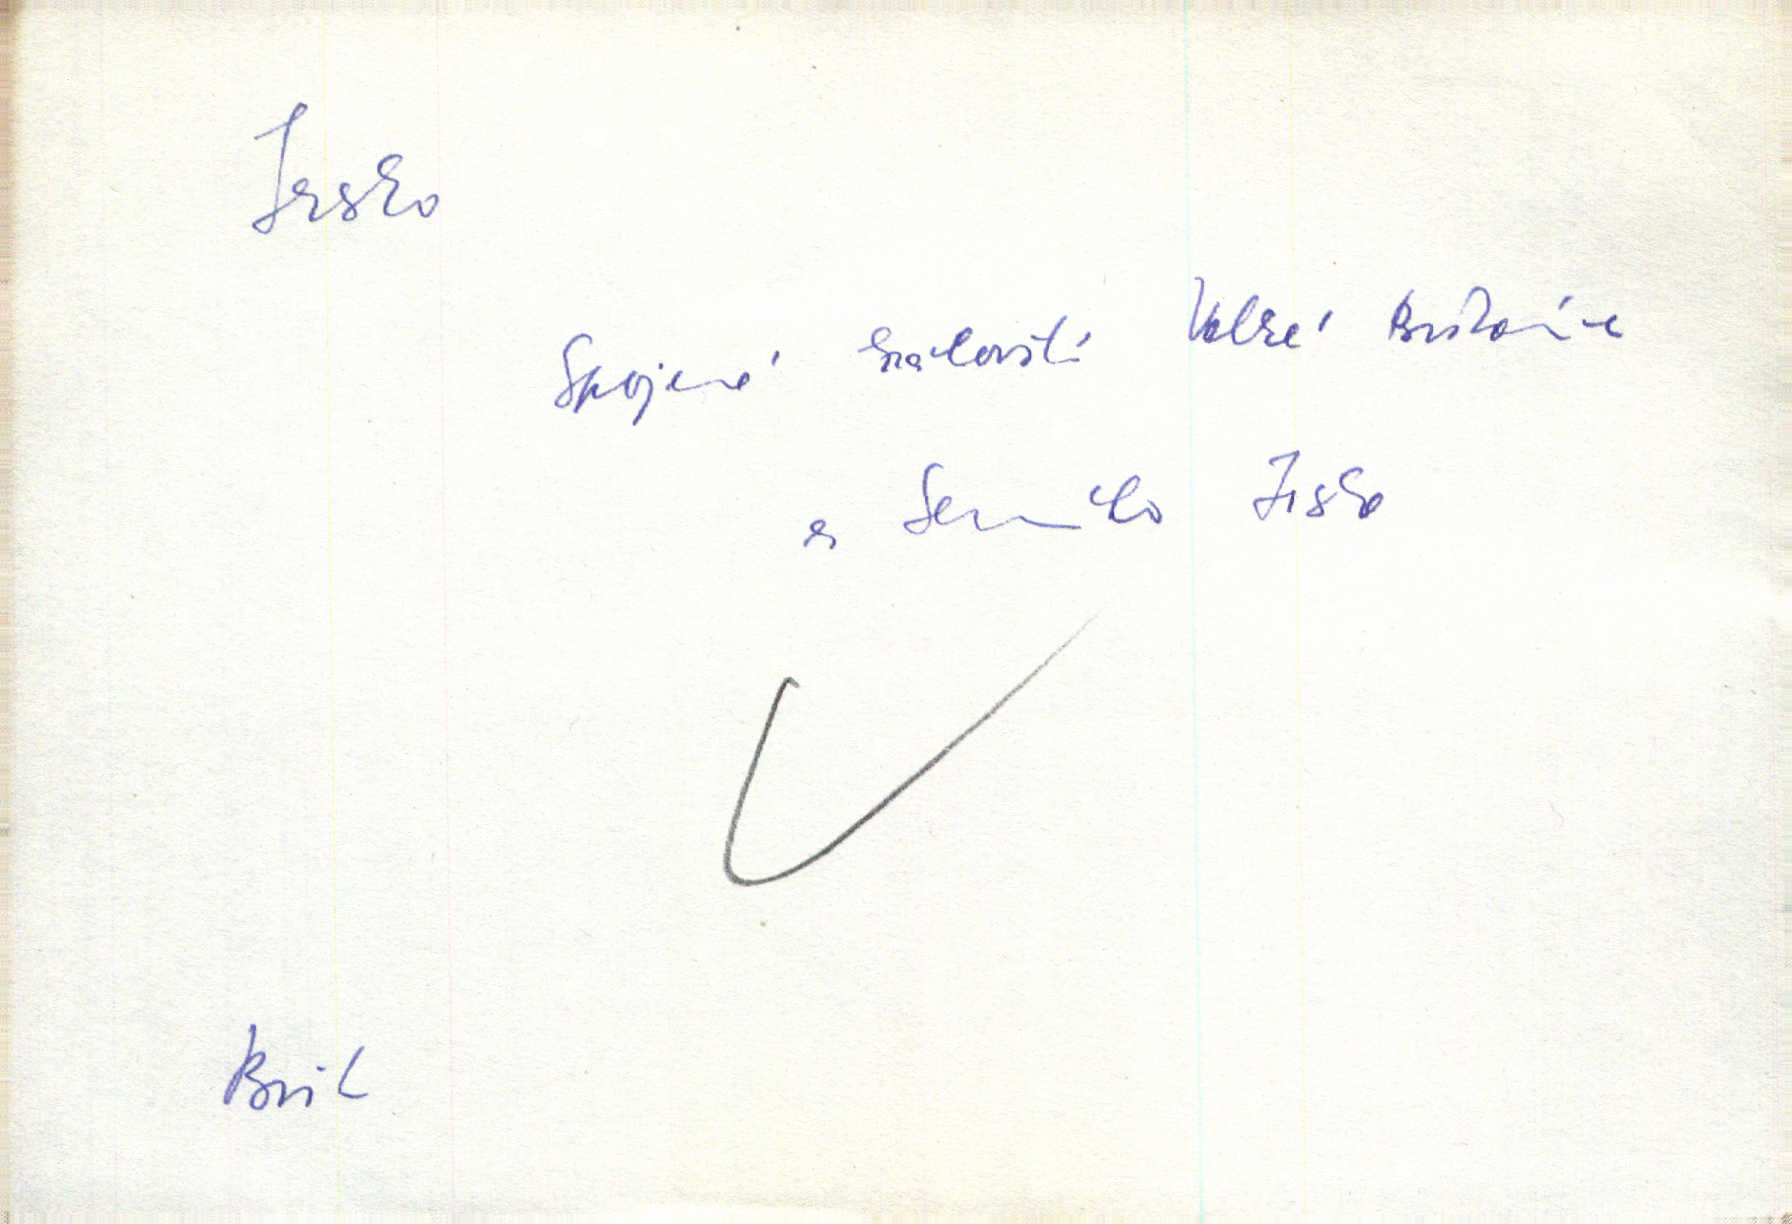 Irsko
Spojené království Velké Británie
a Severního Irska
Brit